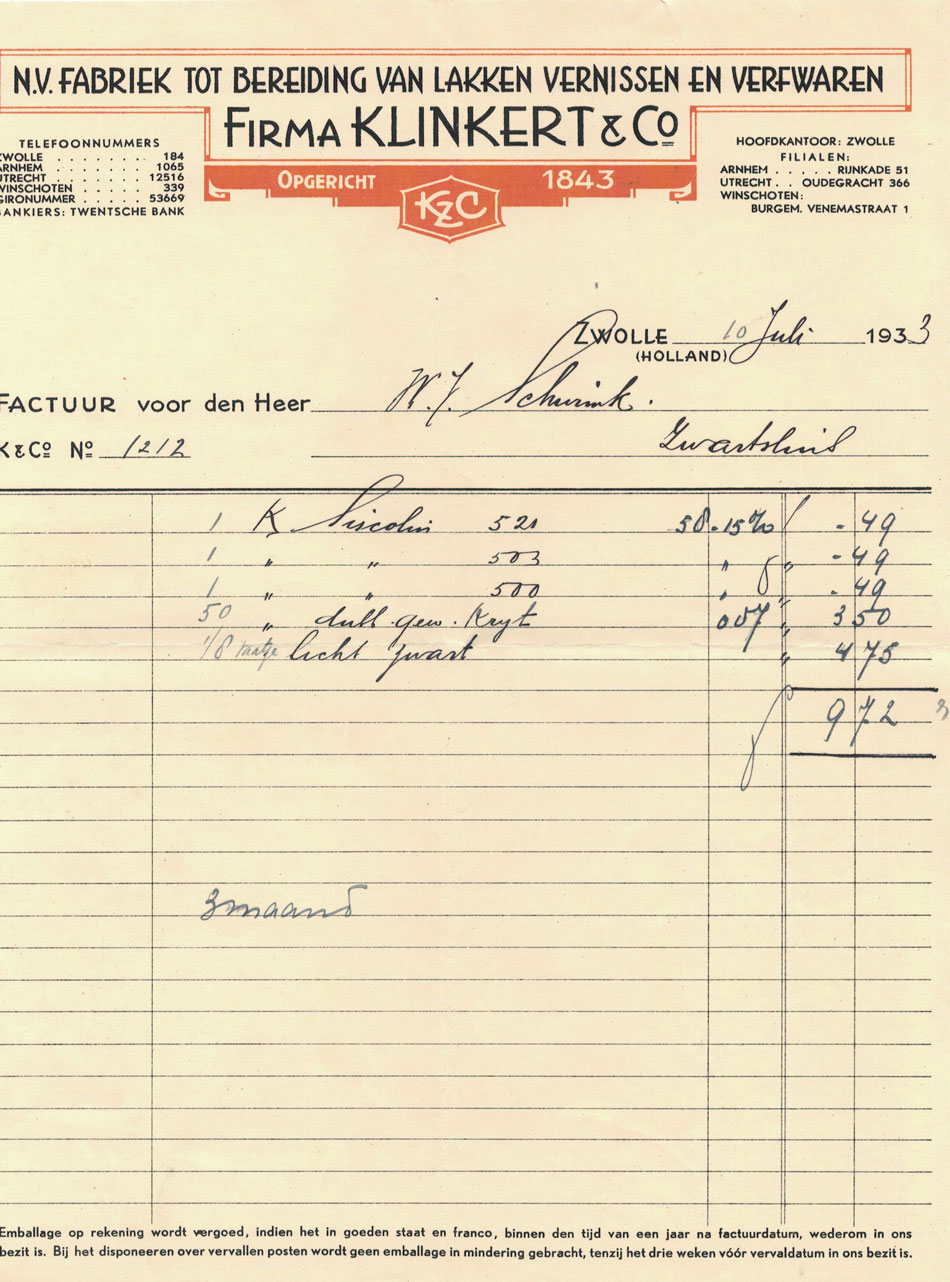 N.V. FABRIEK TOT BEREIDING VAN LAKKEN VERNISSEN EN VERFWAREN
FIRMA KLINKERT & Co
OPGERICHT 1843
K&C
TELEFOONNUMMERS
ZWOLLE . . . . . . . . 184
ARNHEM . . . . . . . 1065
UTRECHT . . . . . . 12516
WINSCHOTEN . . . . . 339
GIRONUMMER . . . . . 53669
BANKIERS: TWENTSCHE BANK
HOOFDKANTOOR: ZWOLLE
FILIALEN:
ARNHEM . . . . . RIJNKADE 51
UTRECHT . . OUDEGRACHT 366
WINSCHOTEN:
BURGEM. VENEMASTRAAT 1
ZWOLLE 10 Juli 1933
(HOLLAND)
FACTUUR voor den Heer W. J. Schurink.
K&Co No 1212 Zwartsluis
1 K 521 58-15% - 49
1 " " 503 " " - 49
1 " " 500 " " - 49
50 " dubb. gew. Kryt 007 " 3 50
1/8 vaatje licht zwart " 4 75
9 72
3 maand
Emballage op rekening wordt vergoed, indien het in goeden staat en franco, binnen den tijd van een jaar na factuurdatum, wederom in ons
bezit is. Bij het disponeeren over vervallen posten wordt geen emballage in mindering gebracht, tenzij het drie weken vóór vervaldatum in ons bezit is.